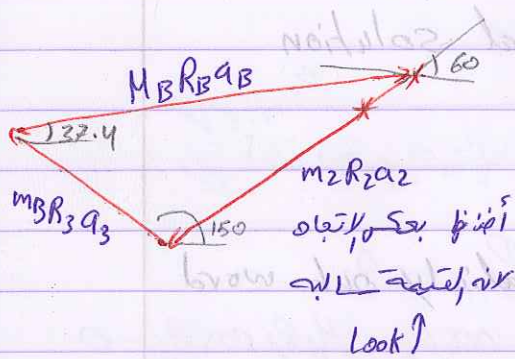 M_B R_B a_B
60
37.4
m_2 R_2 a_2
m_B R_3 a_3
150
بعكس الاتجاه
لانه القيمة سالبه
Look ↑